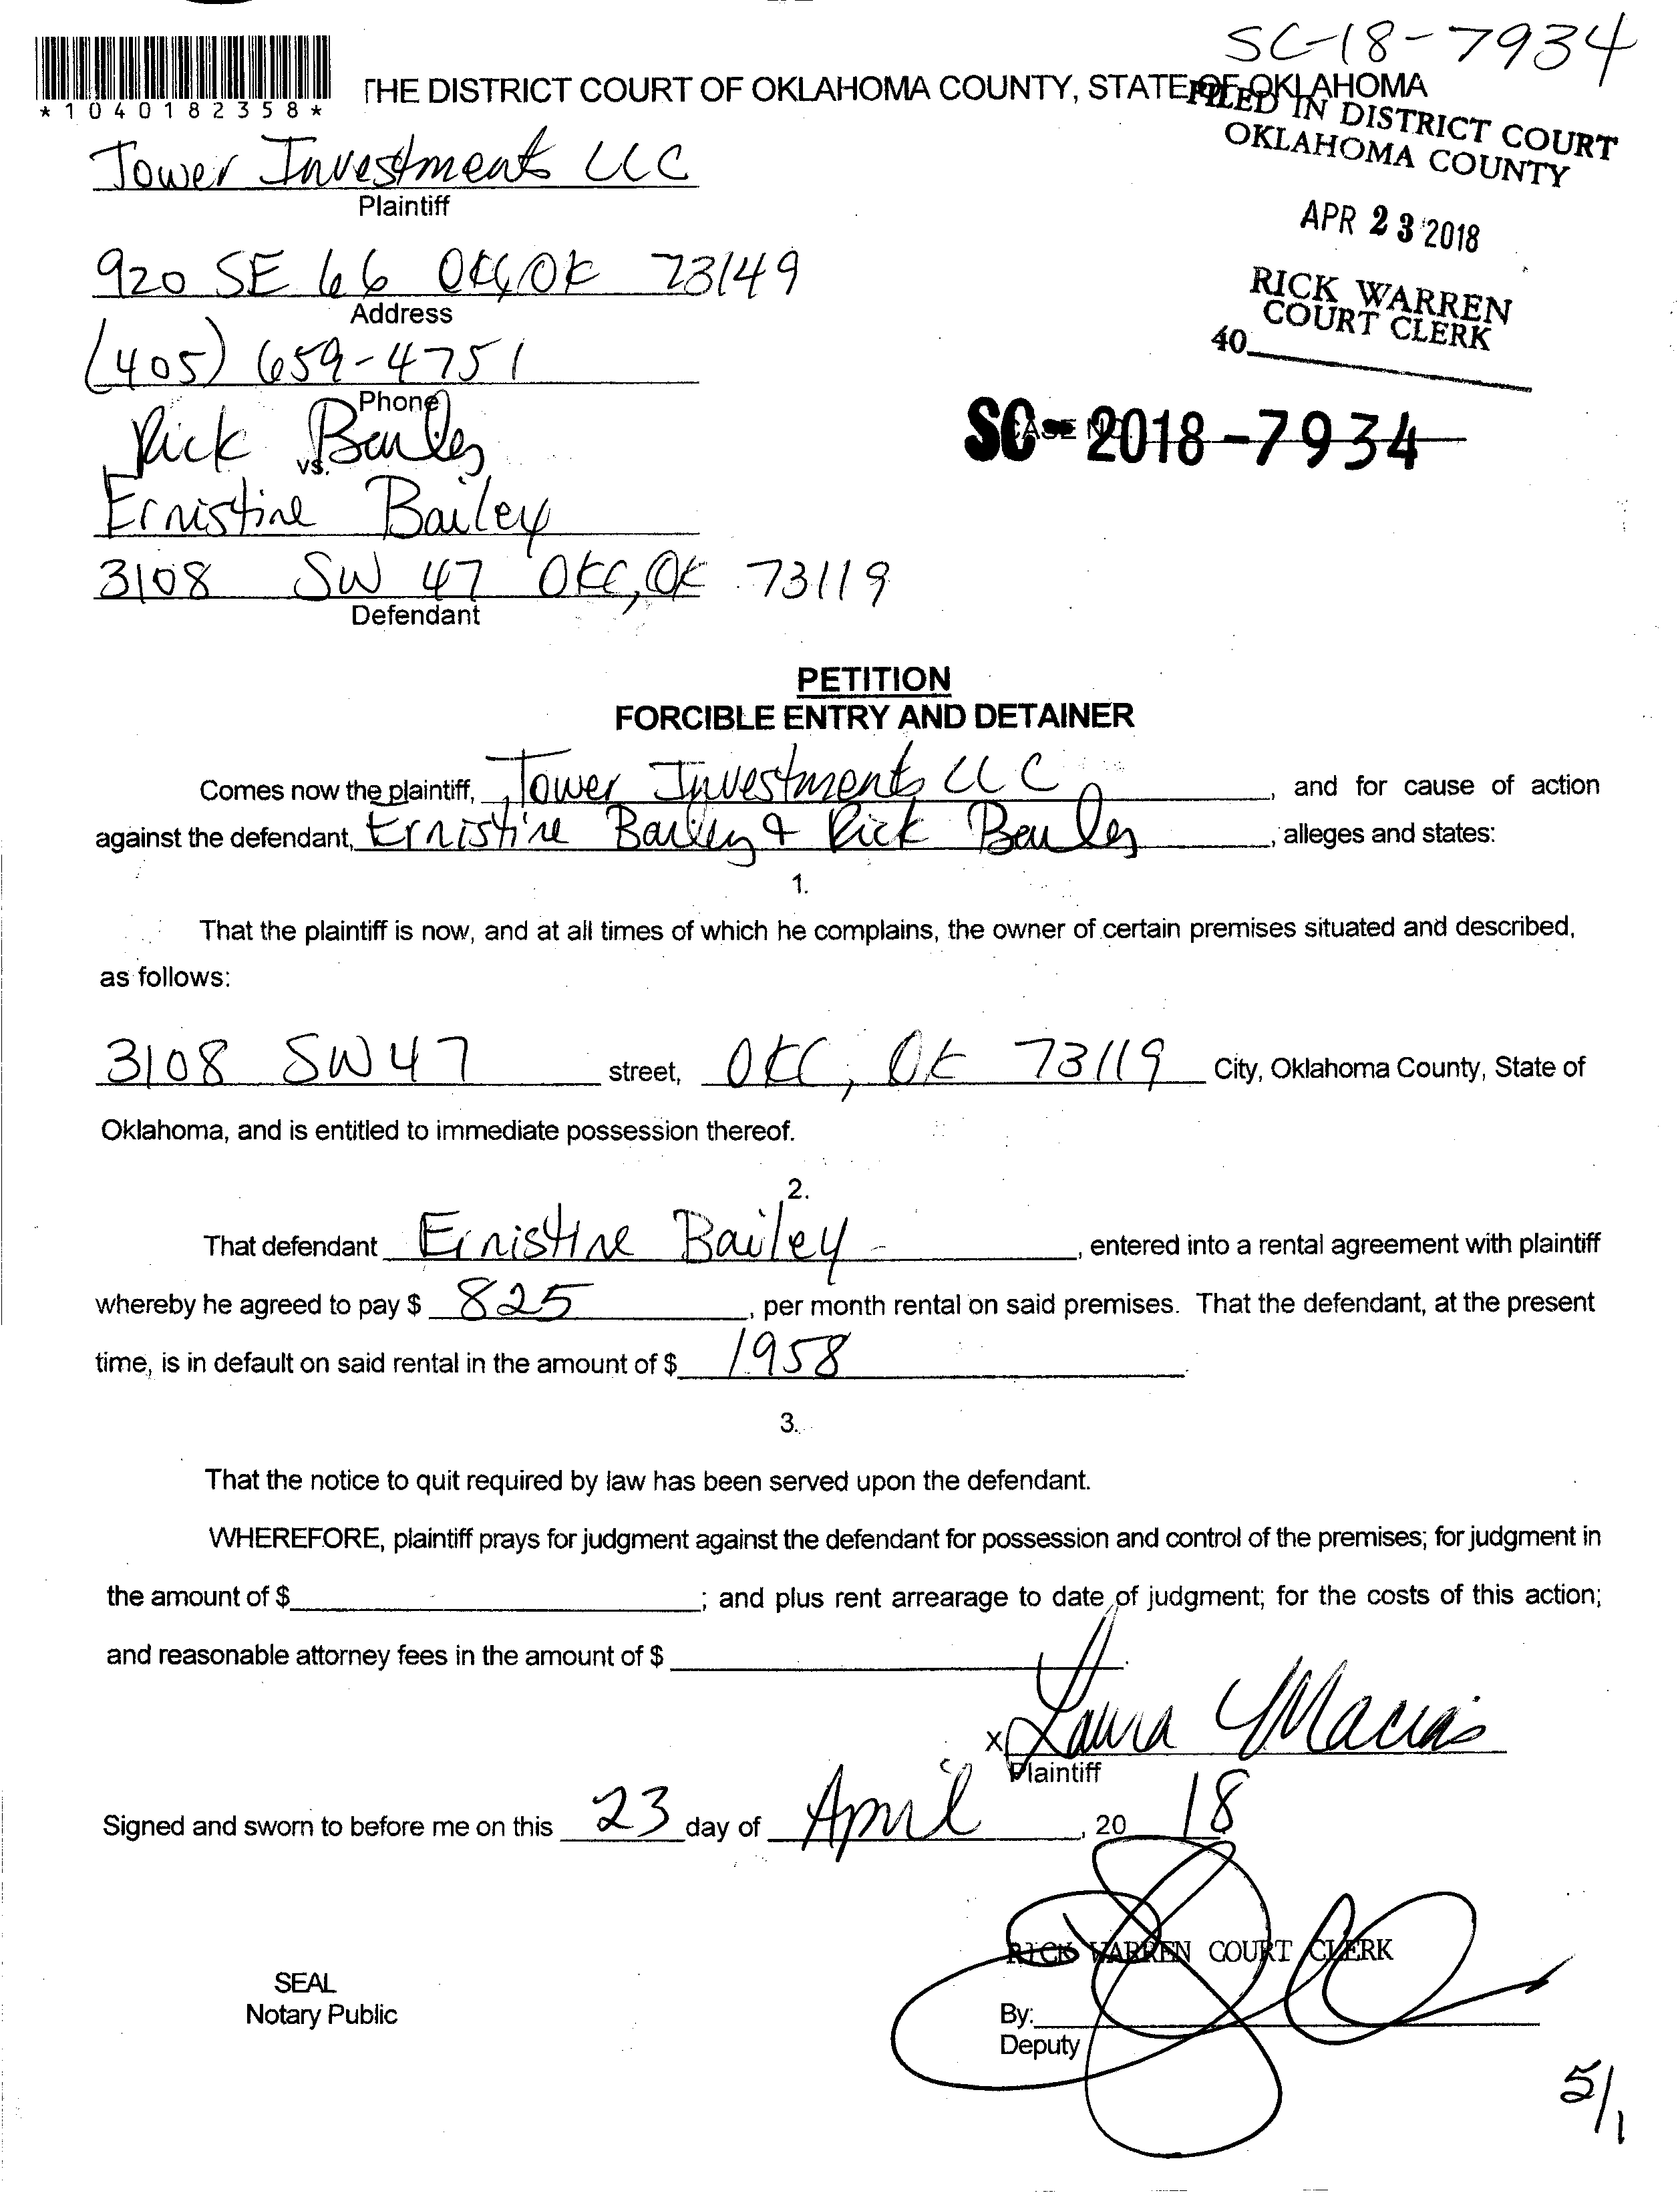 SC-18-7934
*1040182358*
THE DISTRICT COURT OF OKLAHOMA COUNTY, STATE OF OKLAHOMA
FILED IN DISTRICT COURT
OKLAHOMA COUNTY
Tower Investments LLC
Plaintiff
APR 23 2018
920 SE 66 OKC, OK 73149
Address
RICK WARREN
COURT CLERK
40
(405) 659-4751
Phone
SC-2018-7934
CASE NO.
Rick
vs.
Ernistine Bailey
3108 SW 47 OKC, OK 73119
Defendant
PETITION
FORCIBLE ENTRY AND DETAINER
Comes now the plaintiff, Tower Investments LLC, and for cause of action
against the defendant, Ernistine Bailey & Rick, alleges and states:
1.
That the plaintiff is now, and at all times of which he complains, the owner of certain premises situated and described,
as follows:
3108 SW 47 street, OKC, OK 73119 City, Oklahoma County, State of
Oklahoma, and is entitled to immediate possession thereof.
2.
That defendant Ernistine Bailey, entered into a rental agreement with plaintiff
whereby he agreed to pay $ 825, per month rental on said premises. That the defendant, at the present
time, is in default on said rental in the amount of $ 1958.
3.
That the notice to quit required by law has been served upon the defendant.
WHEREFORE, plaintiff prays for judgment against the defendant for possession and control of the premises; for judgment in
the amount of $; and plus rent arrearage to date of judgment; for the costs of this action;
and reasonable attorney fees in the amount of $.
x Laura Macias
Plaintiff
Signed and sworn to before me on this 23 day of April, 20 18
RICK WARREN COURT CLERK
SEAL
Notary Public
By:
Deputy
5/1